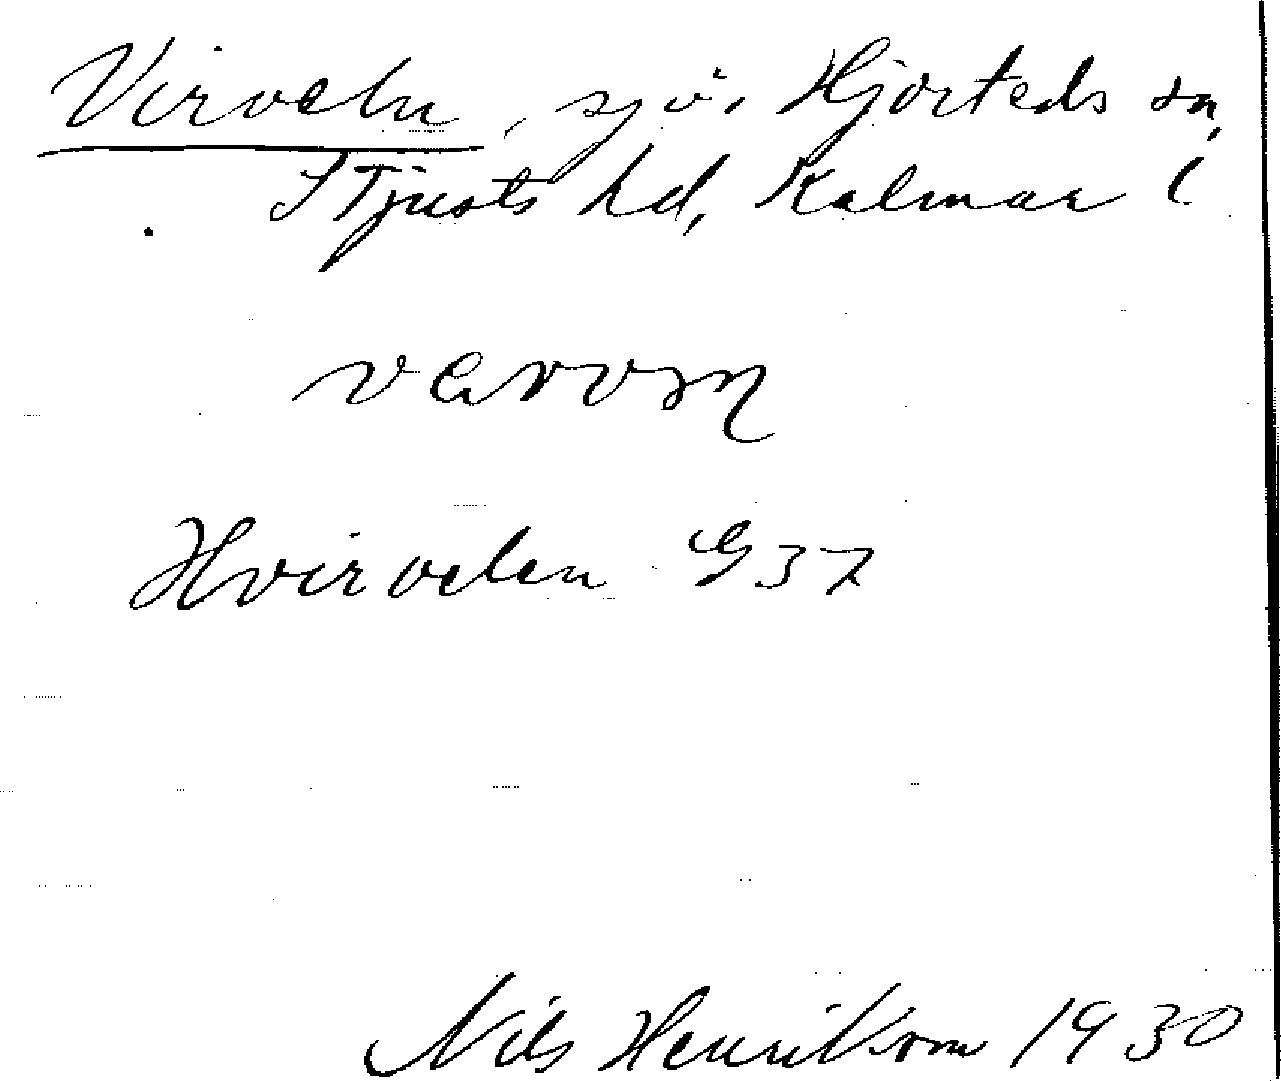 Virveln, sjö, Hjorteds sn,
S Tjusts hd, Kalmar l
Hvirvelen G 37
Nils Henrikson 1930